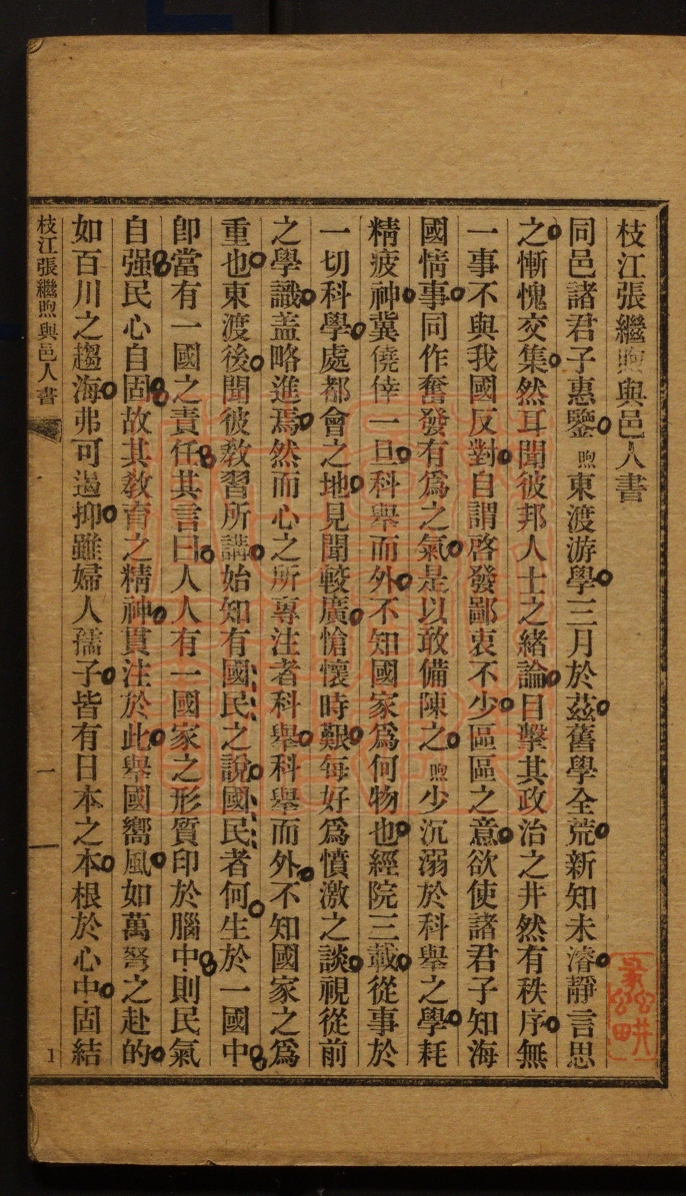 枝江張繼煦與邑人書
同邑諸君子惠鑒煦東渡游學三月於茲舊學全荒新知未濬靜言思
之慚愧交集然耳聞彼邦人士之緒論目擊其政治之井然有秩序無
一事不與我國反對自謂啓發鄙衷不少區區之意欲使諸君子知海
國情事同作奮發有爲之氣是以敢備陳之煦少沉溺於科舉之學耗
精疲神冀僥倖一旦科舉而外不知國家爲何物也經院三載從事於
一切科學處都會之地見聞較廣愴懷時艱每好爲憤激之談視從前
之學識盖略進焉然而心之所專注者科舉科舉而外不知國家之爲
重也東渡後聞彼敎習所講始知有國民之說國民者何生於一國中
卽當有一國之責任其言曰人人有一國家之形質印於腦中則民氣
自强民心自固故其敎育之精神貫注於此舉國嚮風如萬弩之赴的
如百川之趨海弗可遏抑雖婦人孺子皆有日本之本根於心中固結
枝江張繼煦與邑人書
一
1